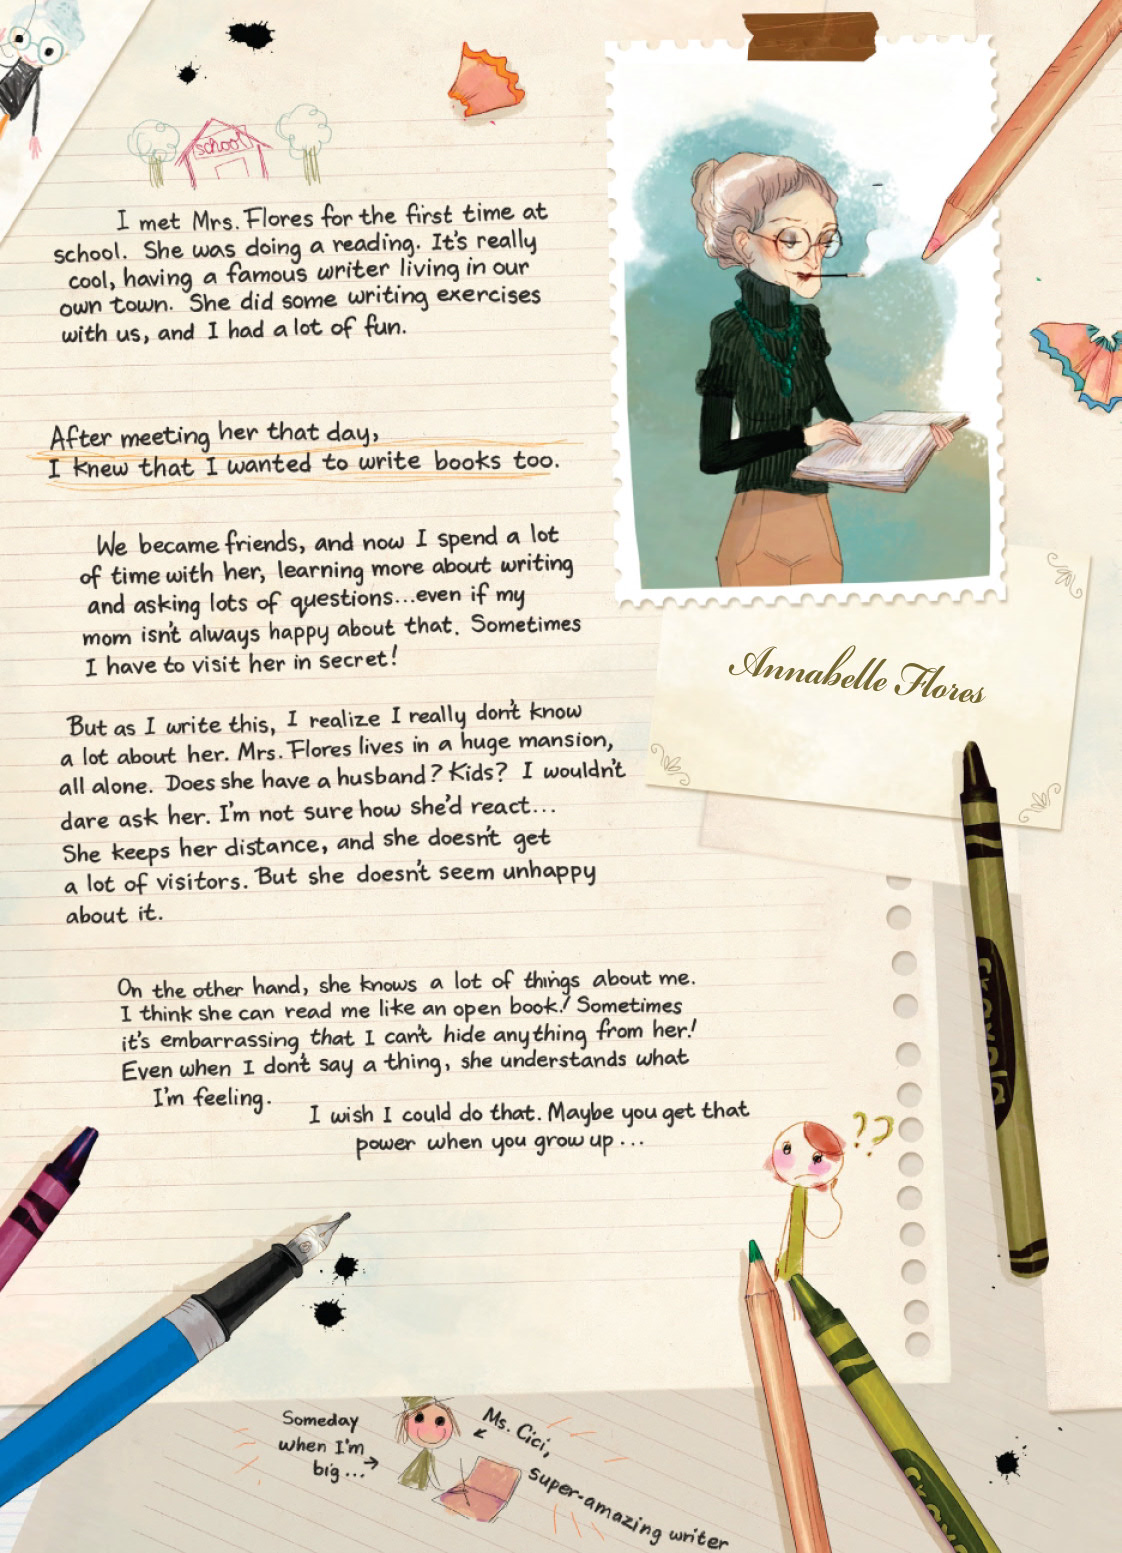 school
I met Mrs. Flores for the first time at
school. She was doing a reading. It's really
cool, having a famous writer living in our
own town. She did some writing exercises
with us, and I had a lot of fun.
After meeting her that day,
I knew that I wanted to write books too.
We became friends, and now I spend a lot
of time with her, learning more about writing
and asking lots of questions...even if my
mom isn't always happy about that. Sometimes
I have to visit her in secret!
Annabelle Flores
But as I write this, I realize I really don't know
a lot about her. Mrs. Flores lives in a huge mansion,
all alone. Does she have a husband? Kids? I wouldn't
dare ask her. I'm not sure how she'd react...
She keeps her distance, and she doesn't get
a lot of visitors. But she doesn't seem unhappy
about it.
On the other hand, she knows a lot of things about me.
I think she can read me like an open book! Sometimes
it's embarrassing that I can't hide anything from her!
Even when I don't say a thing, she understands what
I'm feeling.
I wish I could do that. Maybe you get that
power when you grow up...
??
Crayola
Someday
when I'm
big...
Ms. Cici,
super-amazing writer
Crayo